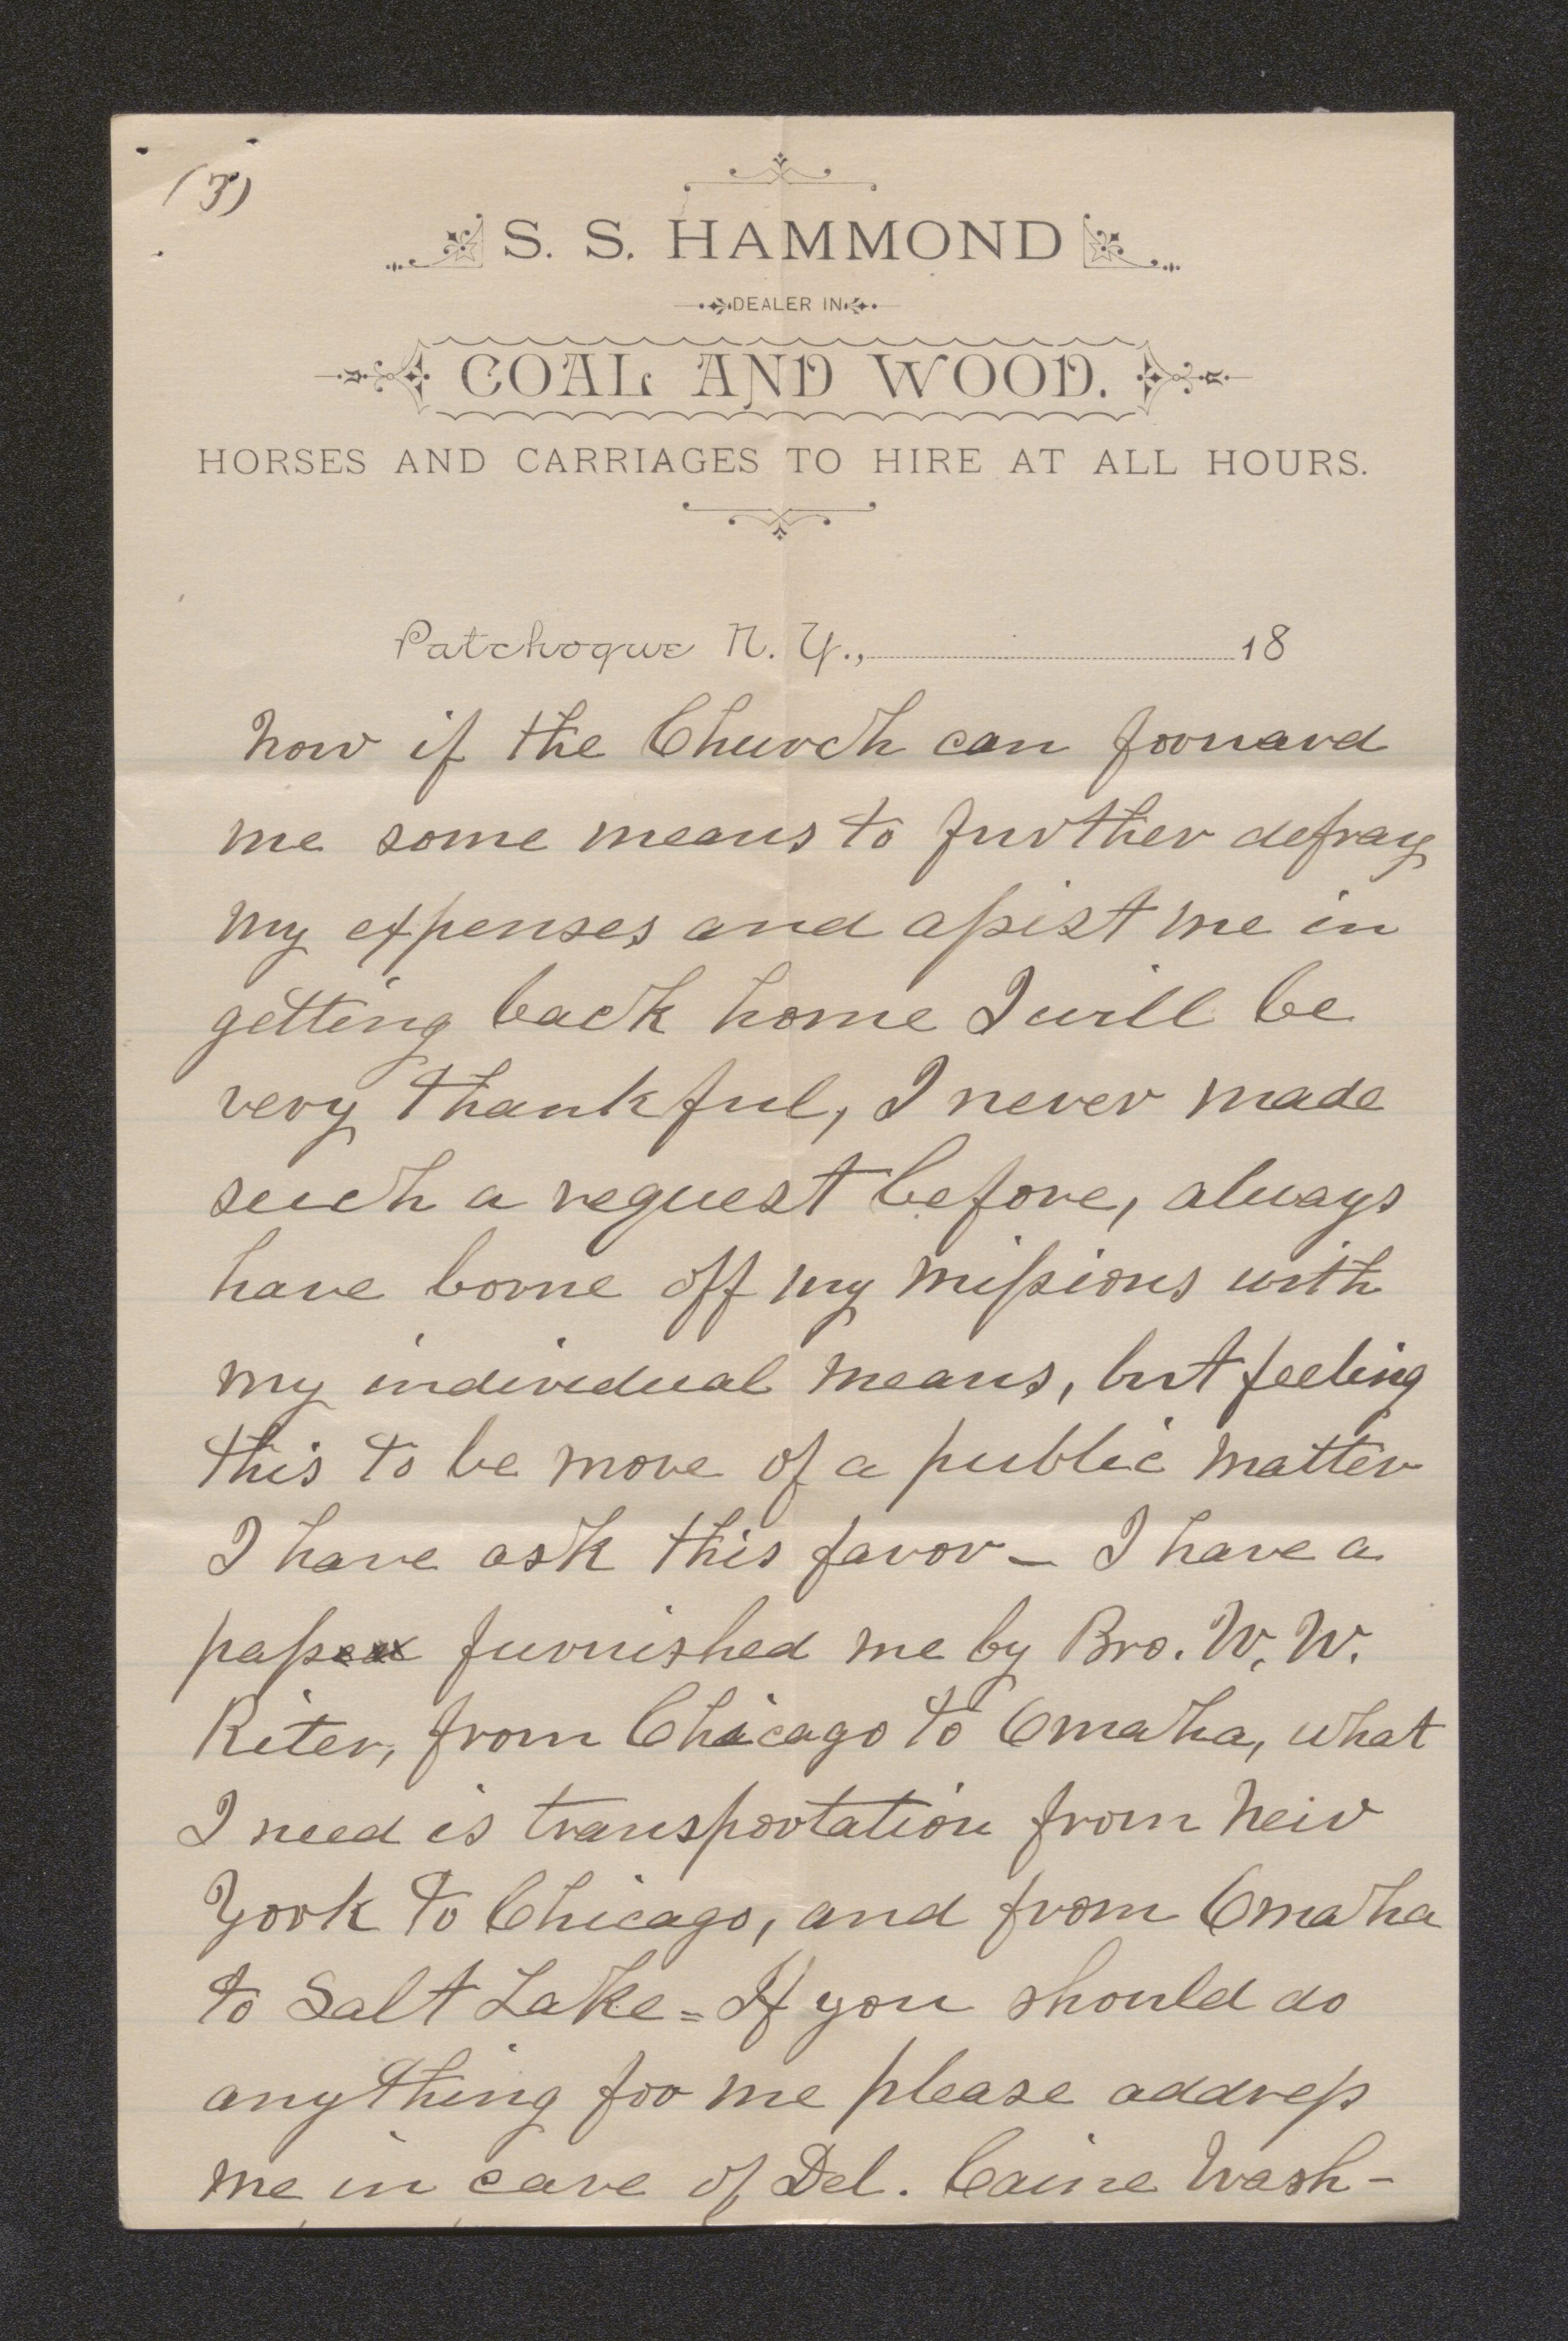 (3)
S. S. HAMMOND
DEALER IN
COAL AND WOOD.
HORSES AND CARRIAGES TO HIRE AT ALL HOURS.
Patchogue N. Y., 18
now if the Church can forward
me some means to further defray
my expenses and assist me in
getting back home I will be
very thankful, I never made
such a request before, always
have borne off my missions with
my individual means, but feeling
this to be more of a public matter
I have ask this favor – I have a
pass furnished me by Bro. W. W.
Riter, from Chicago to Omaha, what
I need is transportation from New
York to Chicago, and from Omaha
to Salt Lake = If you should do
anything for me please address
me in care of Del. Caine Wash-